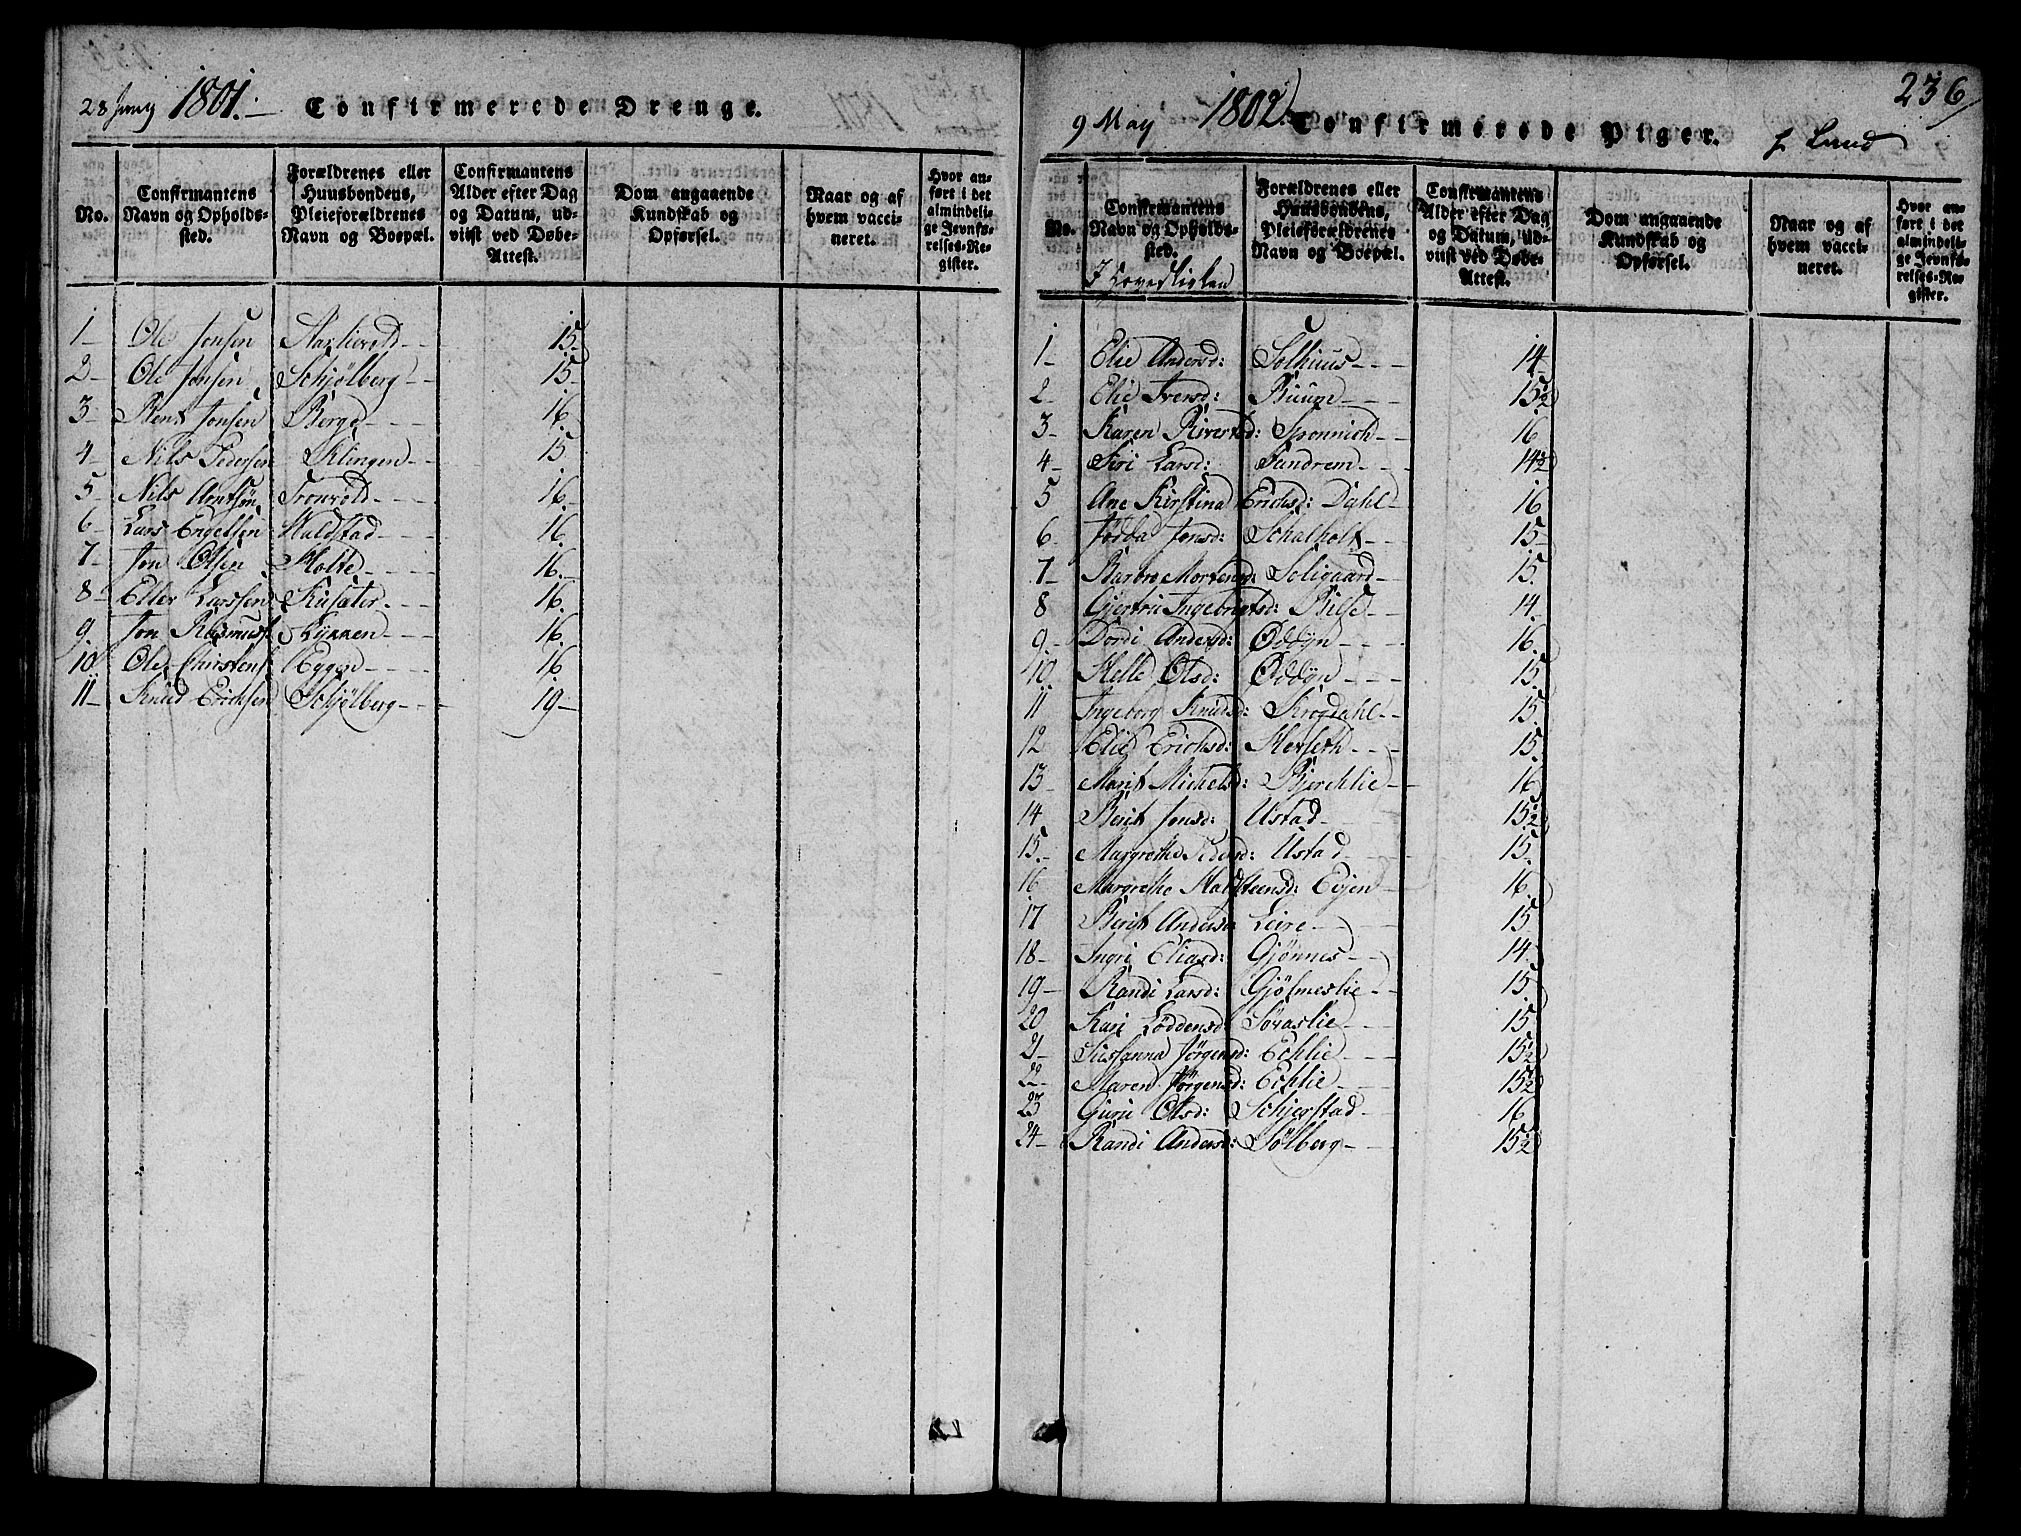 28 Juny 1801.— Confirmerede Drenge.
No.
Confirmantens Navn og Opholds-sted.
Forældrenes eller Huusbondens, Pleieforældrenes Navn og Boepæl.
Confirmantens Alder efter Dag og Datum, ud-viist ved Døbe-Attest.
Dom angaaende Kundskab og Opførsel.
Naar og af hvem vacci-neret.
Hvor an-ført i det almindeli-ge Jevnfø-relses-Re-gister.
1 Ole Jonsen 15
2 Ole Jonsen Schjølberg 15
3 Jonsen Berge 16
4 Nils Pedersen Klingen 15
5 Nils Arntsøn Tronvold 16
6 Lars Engelsen Haldstad 16
7 Jon Olsen Holte 16
8 Eller Larssen Kusæter 16
9 Jon Rasmuss Lykken 16
10 Ole Christens Eggen 16
11 Knud Erichsen Schjølberg 19
236
9 May 1802. Confirmerede Piger. Lund
No.
Confirmantens Navn og Opholds-sted.
I Hovedkirken
Forældrenes eller Huusbondens, Pleieforældrenes Navn og Boepæl.
Confirmantens Alder efter Dag og Datum, ud-viist ved Døbe-Attest.
Dom angaaende Kundskab og Opførsel.
Naar og af hvem vacci-neret.
Hvor an-ført i det almindeli-ge Jevnfø-relses-Re-gister.
1 Elie Andersd: Solhuus 14
2 Elie Iversd: Buum 15½
3 Karen Sponnich 16
4 Siri Larsd: Sundrem 14½
5 Ane Kirstina Erichsd: Dahl 16
6 Jonsd: Schalholt 15
7 Barbro Mortensd: Soligaard 15
8 Gjertru Ingebrigtsd: 14
9 Dordi Andersd: Oddyn 16
10 Helle Olsd: Oddyn 15
11 Ingeborg Knudsd: Krogdahl 15
12 Elie Erichsd: Herseth 15
13 Marit Michelsd: Bjerchlie 16
14 Berit Jonsd: Ustad 15½
15 Margrethe Pedersd: Ustad 15
16 Margrethe Haldsteensd: Evjen 16
17 Berit Anders Leire 15
18 Ingri Eliasd: Gjønnes 14
19 Randi Larsd: Gjølmeslie 15
20 Kari Loddensd: Søraslie 15
21 Sussanna Jørgensd: Echlie 15½
22 Maren Jørgensd: Echlie 15½
23 Guru Olsd: Schjerstad 16
24 Randi Andersd: Sølberg 15½